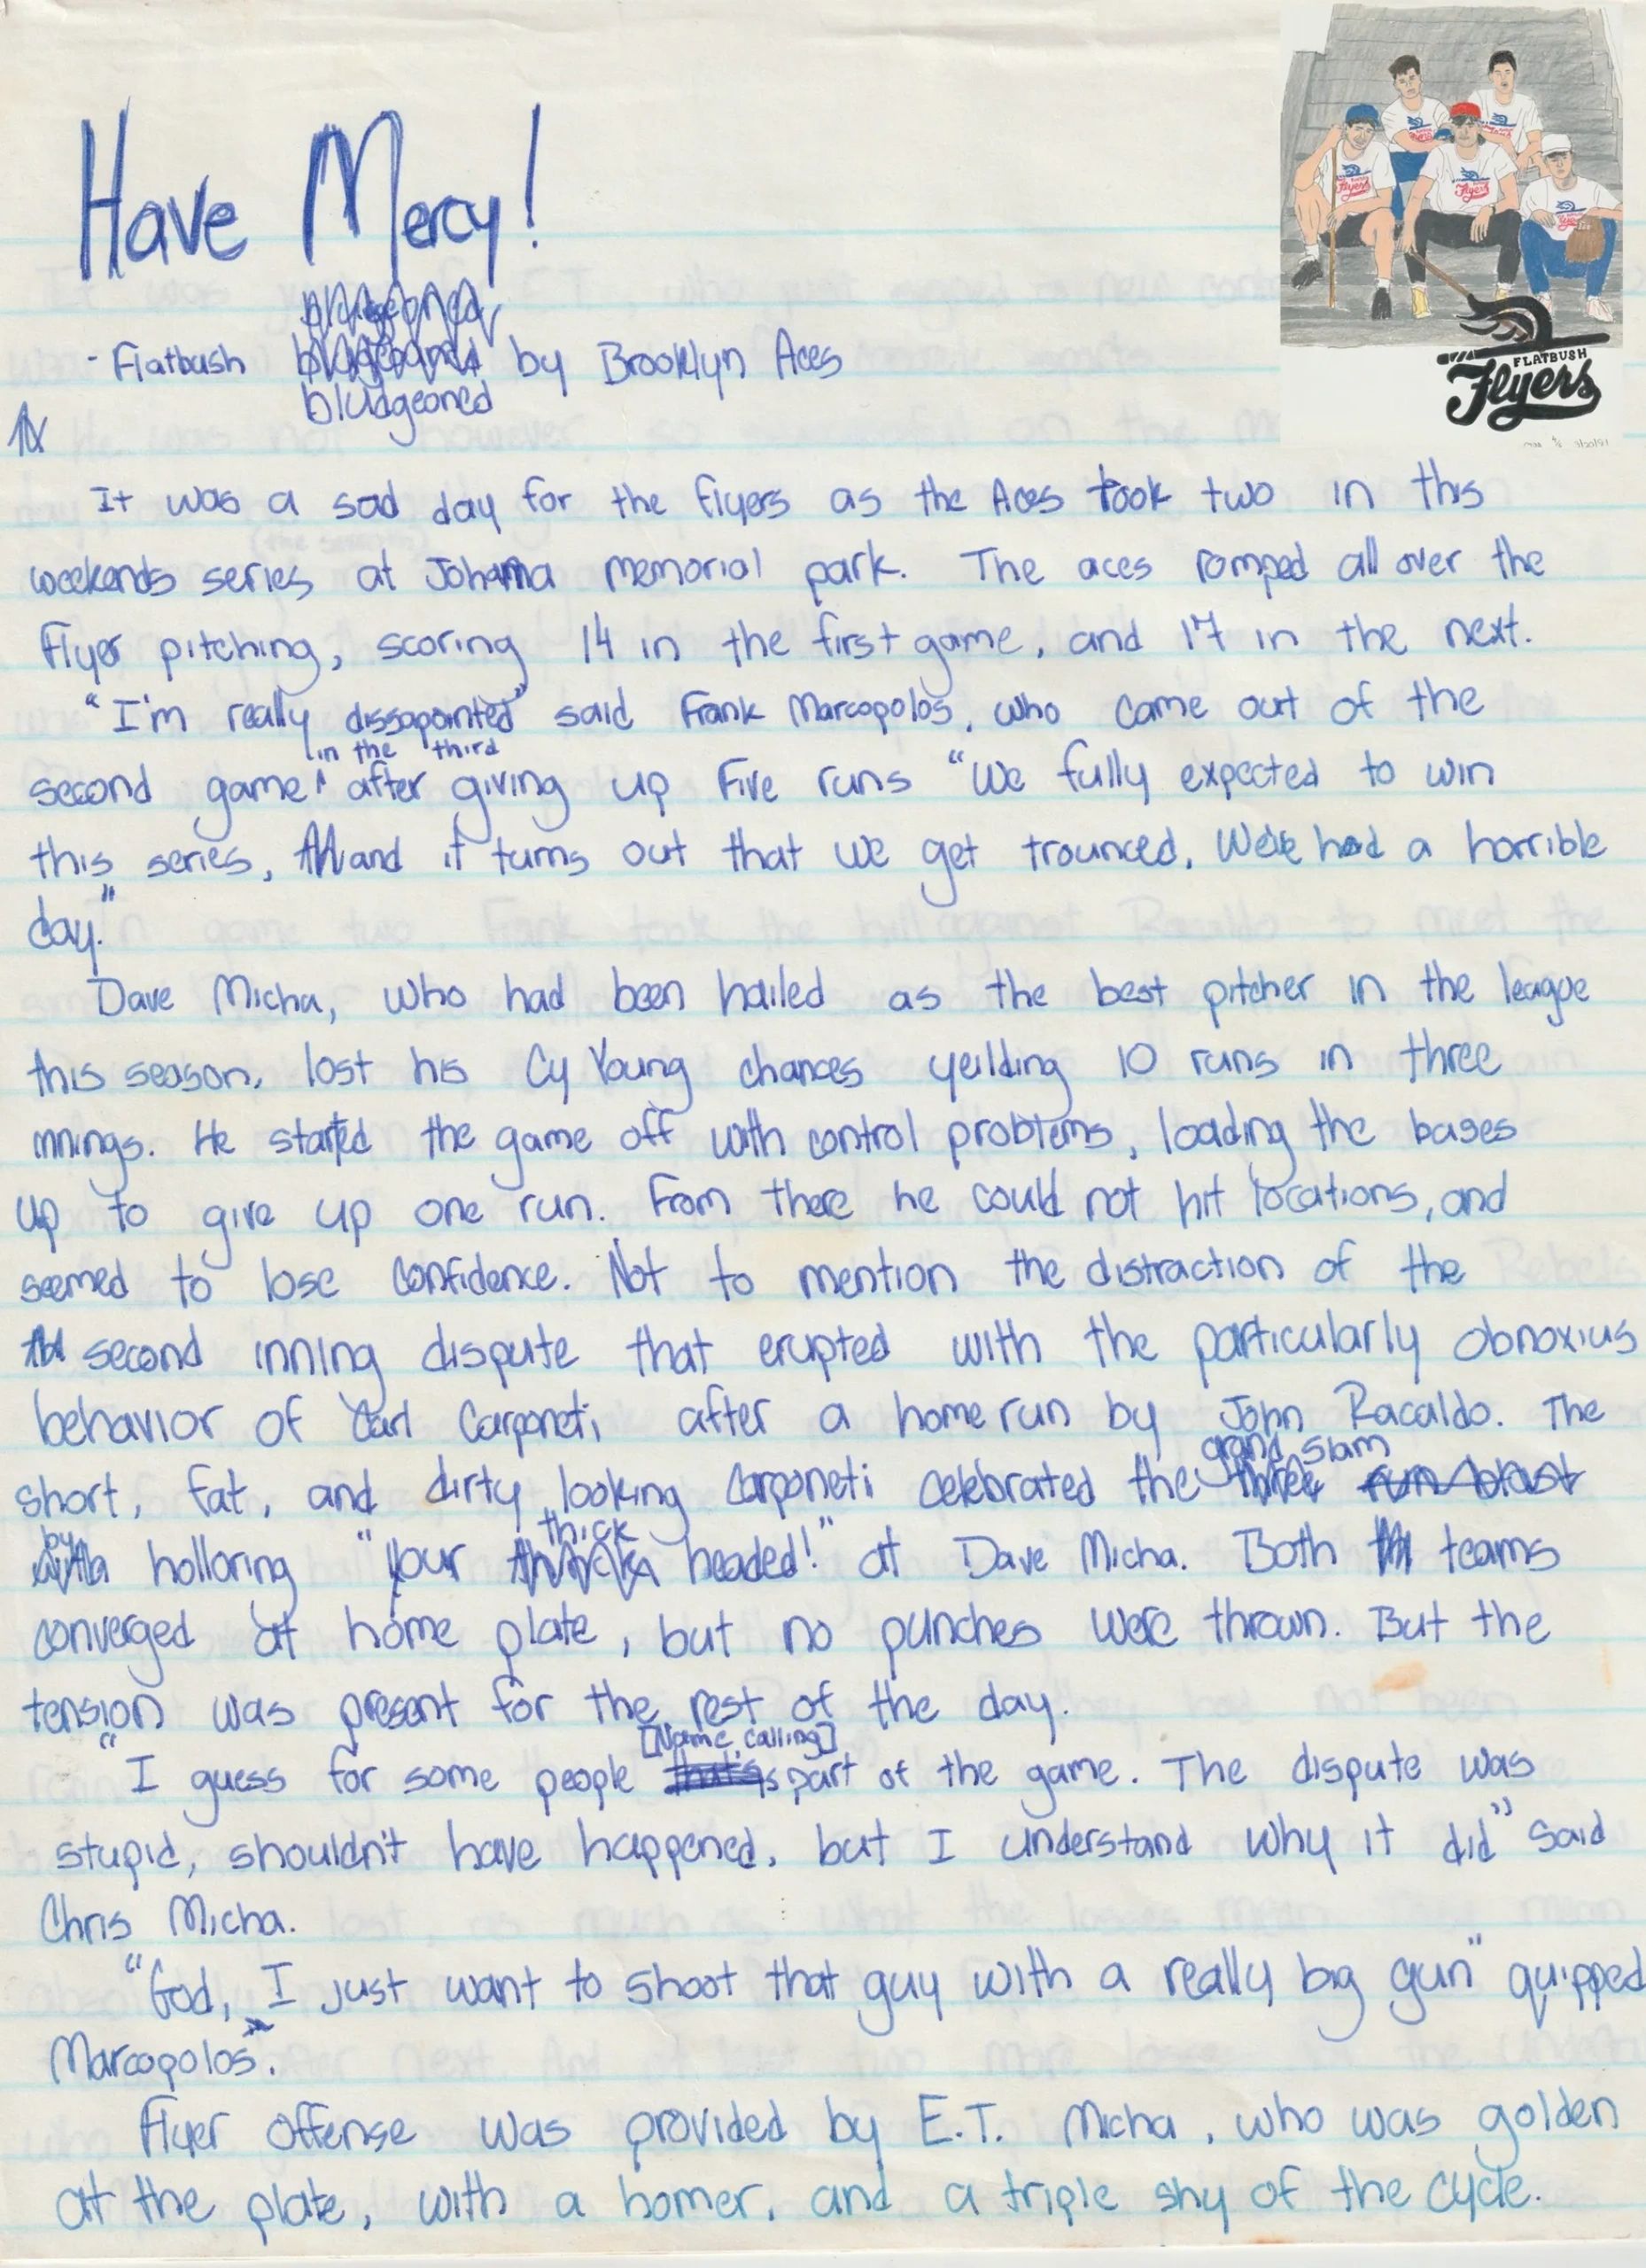 Have Mercy!
FLATBUSH
Flyers
- Flatbush bludgeoned by Brooklyn Aces
It was a sad day for the Flyers as the Aces took two in this
weekends series at Johama memorial park. The aces romped all over the
Flyer pitching, scoring 14 in the first game, and 17 in the next.
"I'm really dissapointed" said Frank Marcopolos, who came out of the
in the third
second game after giving up Five runs "We fully expected to win
this series, and it turns out that we get trounced. We've had a horrible
day."
Dave Micha, who had been hailed as the best pitcher in the league
this season, lost his Cy Young chances yeilding 10 runs in three
innings. He started the game off with control problems, loading the bases
up to give up one run. From there he could not hit locations, and
seemed to lose confidence. Not to mention the distraction of the
second inning dispute that erupted with the particularly obnoxius
behavior of Carl Carponeti after a home run by John Racaldo. The
grand slam
short, fat, and dirty looking Carponeti celebrated the three run blast
by thick
holloring "your headed!" at Dave Micha. Both teams
converged at home plate, but no punches were thrown. But the
tension was present for the rest of the day.
[Name calling]
"I guess for some people that's is part of the game. The dispute was
stupid, shouldn't have happened, but I understand why it did" said
Chris Micha.
"God, I just want to shoot that guy with a really big gun" quipped
Marcopolos.
Flyer offense was provided by E.T. Micha, who was golden
at the plate, with a homer, and a triple shy of the cycle.